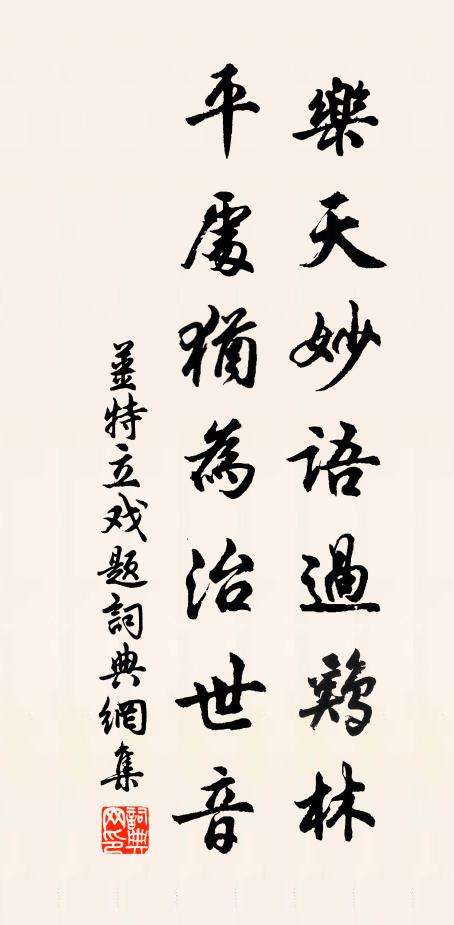 樂天妙語過鷄林
平處猶為治世音
姜特立戏题詞典網集
詞典網印